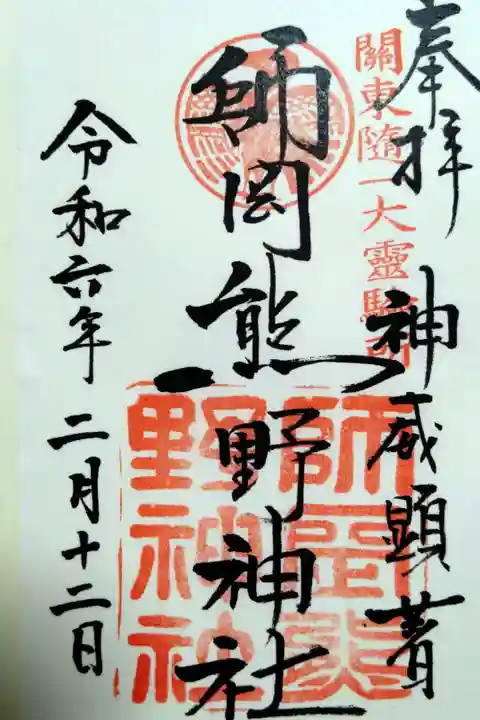 奉拝
關東隨一大靈驗所
神威顕著
師岡熊野神社
師岡熊
野神社
令和六年二月十二日